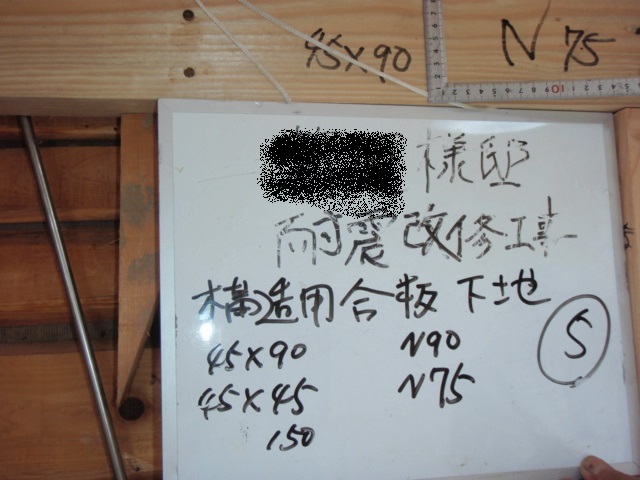 45×90 N75
様邸
耐震改修工事
構造用合板下地
45×90 N90
45×45 N75
150
5